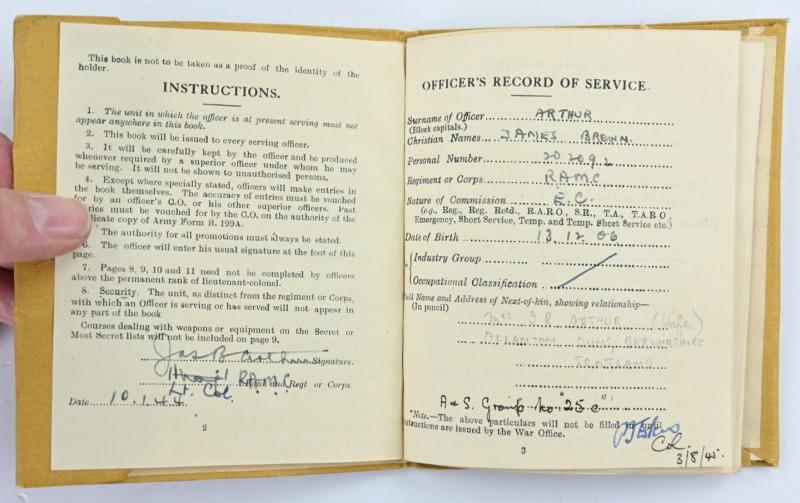 This book is not to be taken as a proof of the identity of the
holder.
INSTRUCTIONS.
1. The unit in which the officer is at present serving must not
appear anywhere in this book.
2. This book will be issued to every serving officer.
3. It will be carefully kept by the officer and be produced
whenever required by a superior officer under whom he may
be serving. It will not be shown to unauthorised persons.
4. Except where specially stated, officers will make entries in
the book themselves. The accuracy of entries must be vouched
for by an officer's C.O. or his other superior officers. Past
ries must be vouched for by the C.O. on the authority of the
licate copy of Army Form B. 199A.
The authority for all promotions must always be stated.
6. The officer will enter his usual signature at the foot of this
page.
7. Pages 8, 9, 10 and 11 need not be completed by officers
above the permanent rank of lieutenant-colonel.
8. Security. The unit, as distinct from the regiment or Corps,
with which an Officer is serving or has served will not appear
in any part of the book
Courses dealing with weapons or equipment on the Secret or
Most Secret lists will not be included on page 9.
Jas B Arthur Signature.
RAMC Rank and Regt or Corps.
Lt. Col.
Date 10.1.44
2
OFFICER'S RECORD OF SERVICE.
Surname of Officer ARTHUR
(Block capitals.)
Christian Names JAMES BROWN
Personal Number 202092
Regiment or Corps RAMC
Nature of Commission E.C.
(e.g., Reg., Reg. Retd., R.A.R.O., S.R., T.A., T.A.R.O.,
Emergency, Short Service, Temp. and Temp. Short Service etc.)
Date of Birth 13.12.06
* Industry Group
Occupational Classification
Full Name and Address of Next-of-kin, showing relationship—
(In pencil)
Mrs J.R. ARTHUR (Wife)
ALLANTON DUNS, BERWICKSHIRE
SCOTLAND
A & S. Group No "25 c"
*Note.—The above particulars will not be filled in until
instructions are issued by the War Office.
Col.
3/8/45.
3